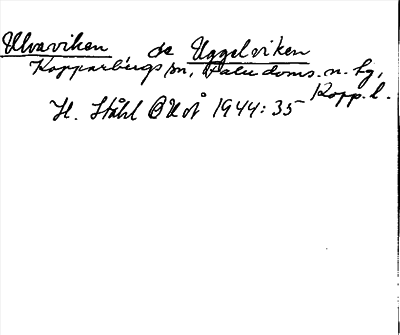 Ulvaviken, se Uggelviken
Kopparbergs sn, Falu doms. n. tg,
Kopp. l.
H. Ståhl BUoÅ 1944:35